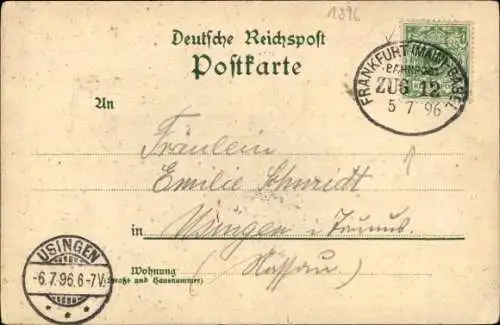 1896
Deutsche Reichspost
Postkarte
FRANKFURT (MAIN)-BASEL
BAHNPOST
ZUG 12
5 7 96
An
Fräulein
Emilie Schmidt
in Usingen i. Taunus.
(Nassau)
Wohnung
(Straße und Hausnummer)
USINGEN
-6.7.96.6-7V.